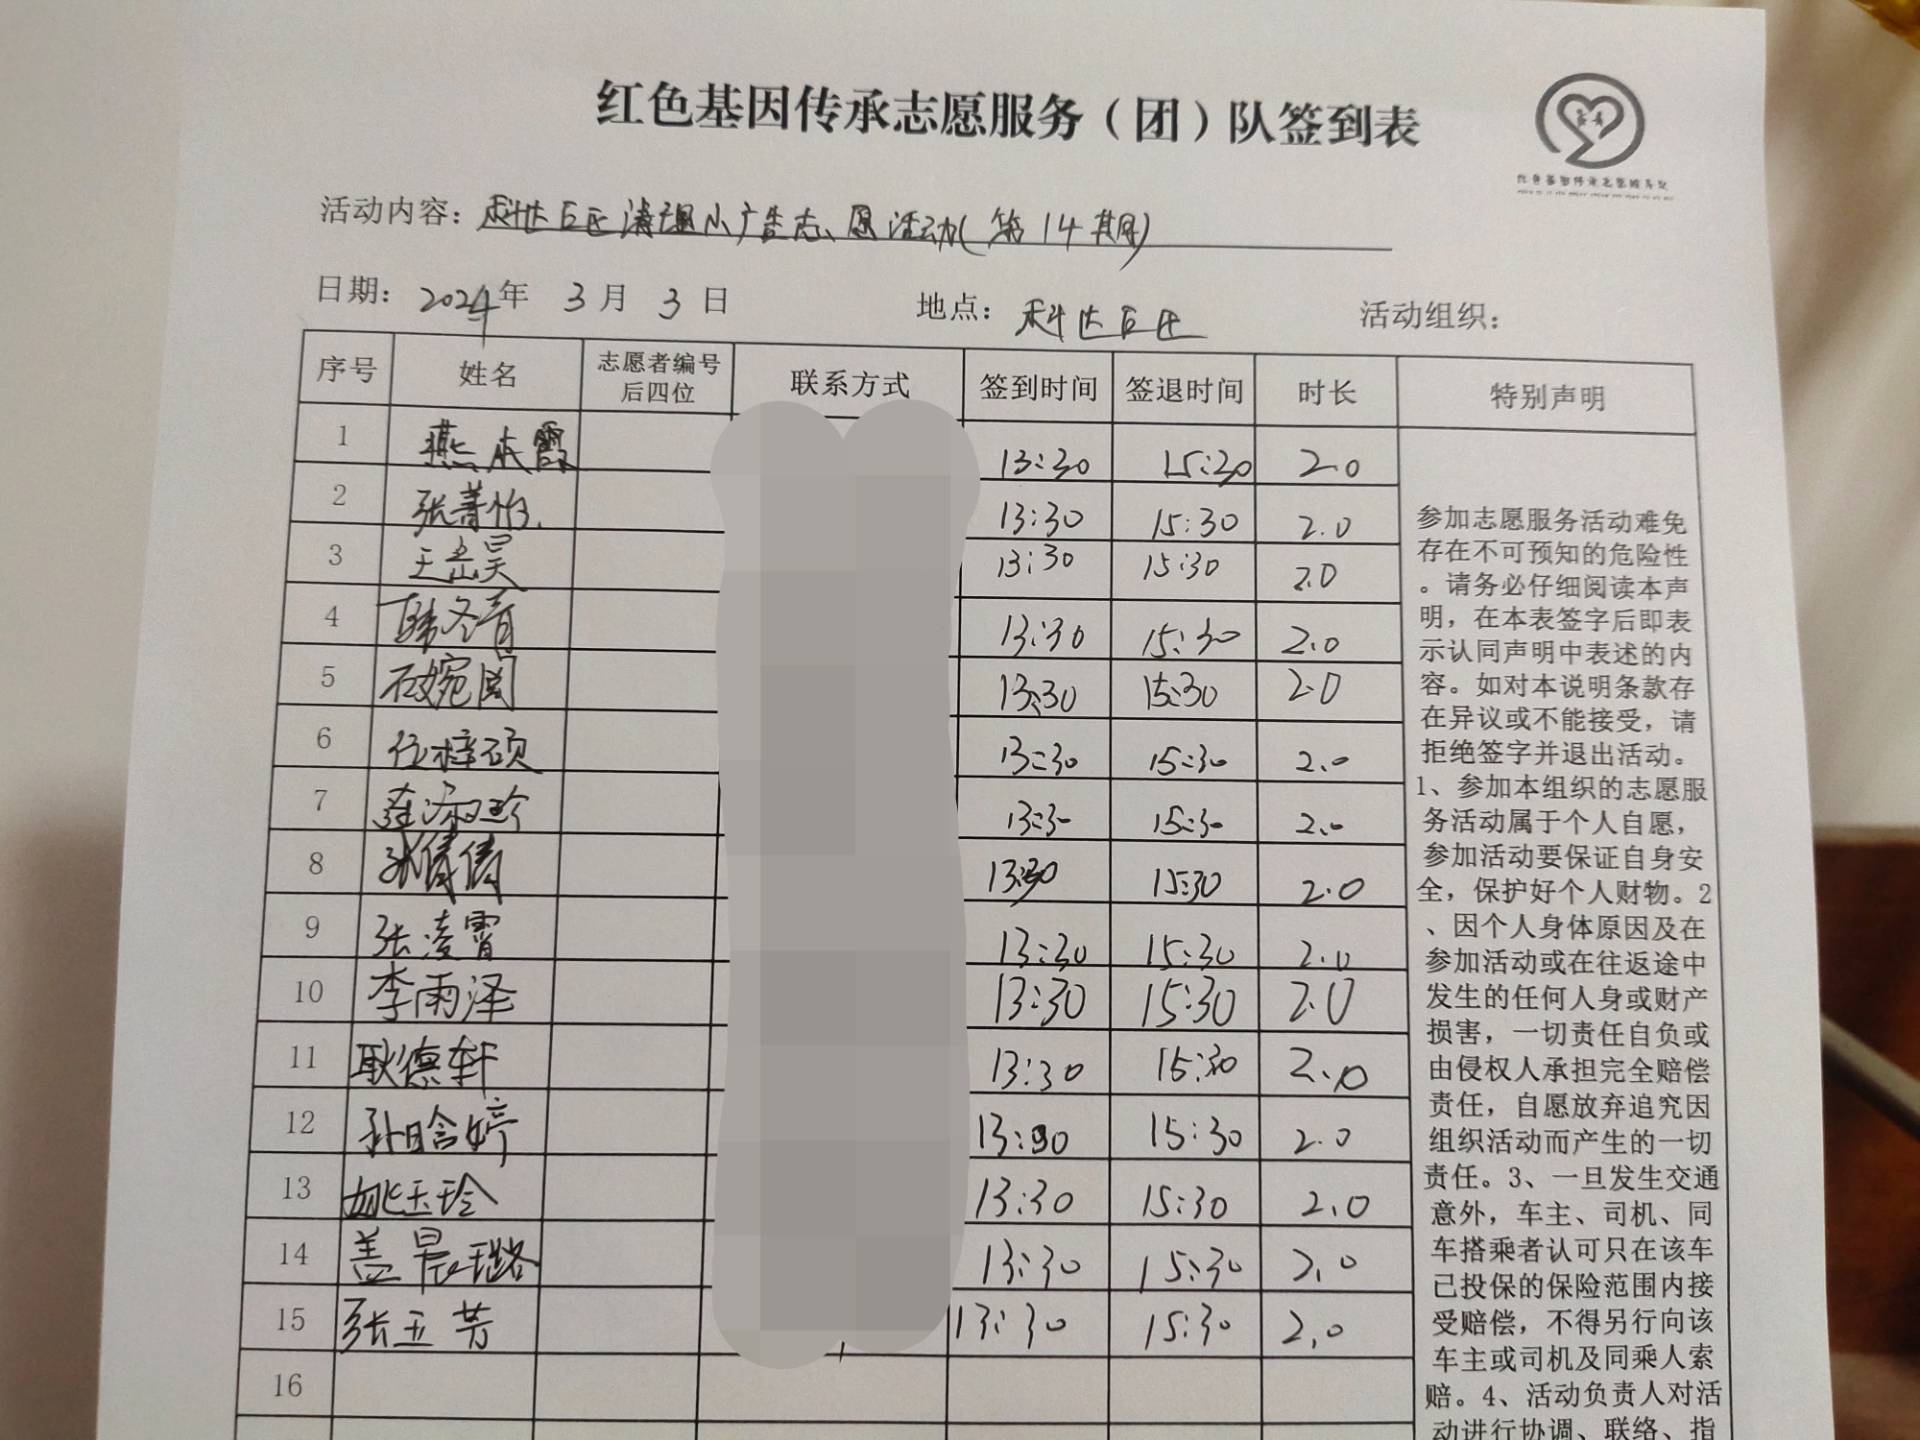 红色基因传承志愿服务（团）队签到表
活动内容：科达巨区清理小广告志愿活动(第14期)
日期：2024年 3月 3日 地点：科达巨区 活动组织：
序号 姓名 志愿者编号后四位 联系方式 签到时间 签退时间 时长 特别声明
1 燕本霞 13:30 15:30 2.0
2 张菁怡 13:30 15:30 2.0
3 王岳昊 13:30 15:30 2.0
4 韩冬育 13:30 15:30 2.0
5 石婉闻 13:30 15:30 2.0
6 任梓硕 13:30 15:30 2.0
7 13:30 15:30 2.0
8 张倩倩 13:30 15:30 2.0
9 张凌霄 13:30 15:30 2.0
10 李雨泽 13:30 15:30 2.0
11 耿德轩 13:30 15:30 2.0
12 孙晗婷 13:30 15:30 2.0
13 姚玉玲 13:30 15:30 2.0
14 盖晨璐 13:30 15:30 2.0
15 张玉芳 13:30 15:30 2.0
16
参加志愿服务活动难免
存在不可预知的危险性
。请务必仔细阅读本声
明，在本表签字后即表
示认同声明中表述的内
容。如对本说明条款存
在异议或不能接受，请
拒绝签字并退出活动。
1、参加本组织的志愿服
务活动属于个人自愿，
参加活动要保证自身安
全，保护好个人财物。2
、因个人身体原因及在
参加活动或在往返途中
发生的任何人身或财产
损害，一切责任自负或
由侵权人承担完全赔偿
责任，自愿放弃追究因
组织活动而产生的一切
责任。3、一旦发生交通
意外，车主、司机、同
车搭乘者认可只在该车
已投保的保险范围内接
受赔偿，不得另行向该
车主或司机及同乘人索
赔。4、活动负责人对活
动进行协调、联络、指